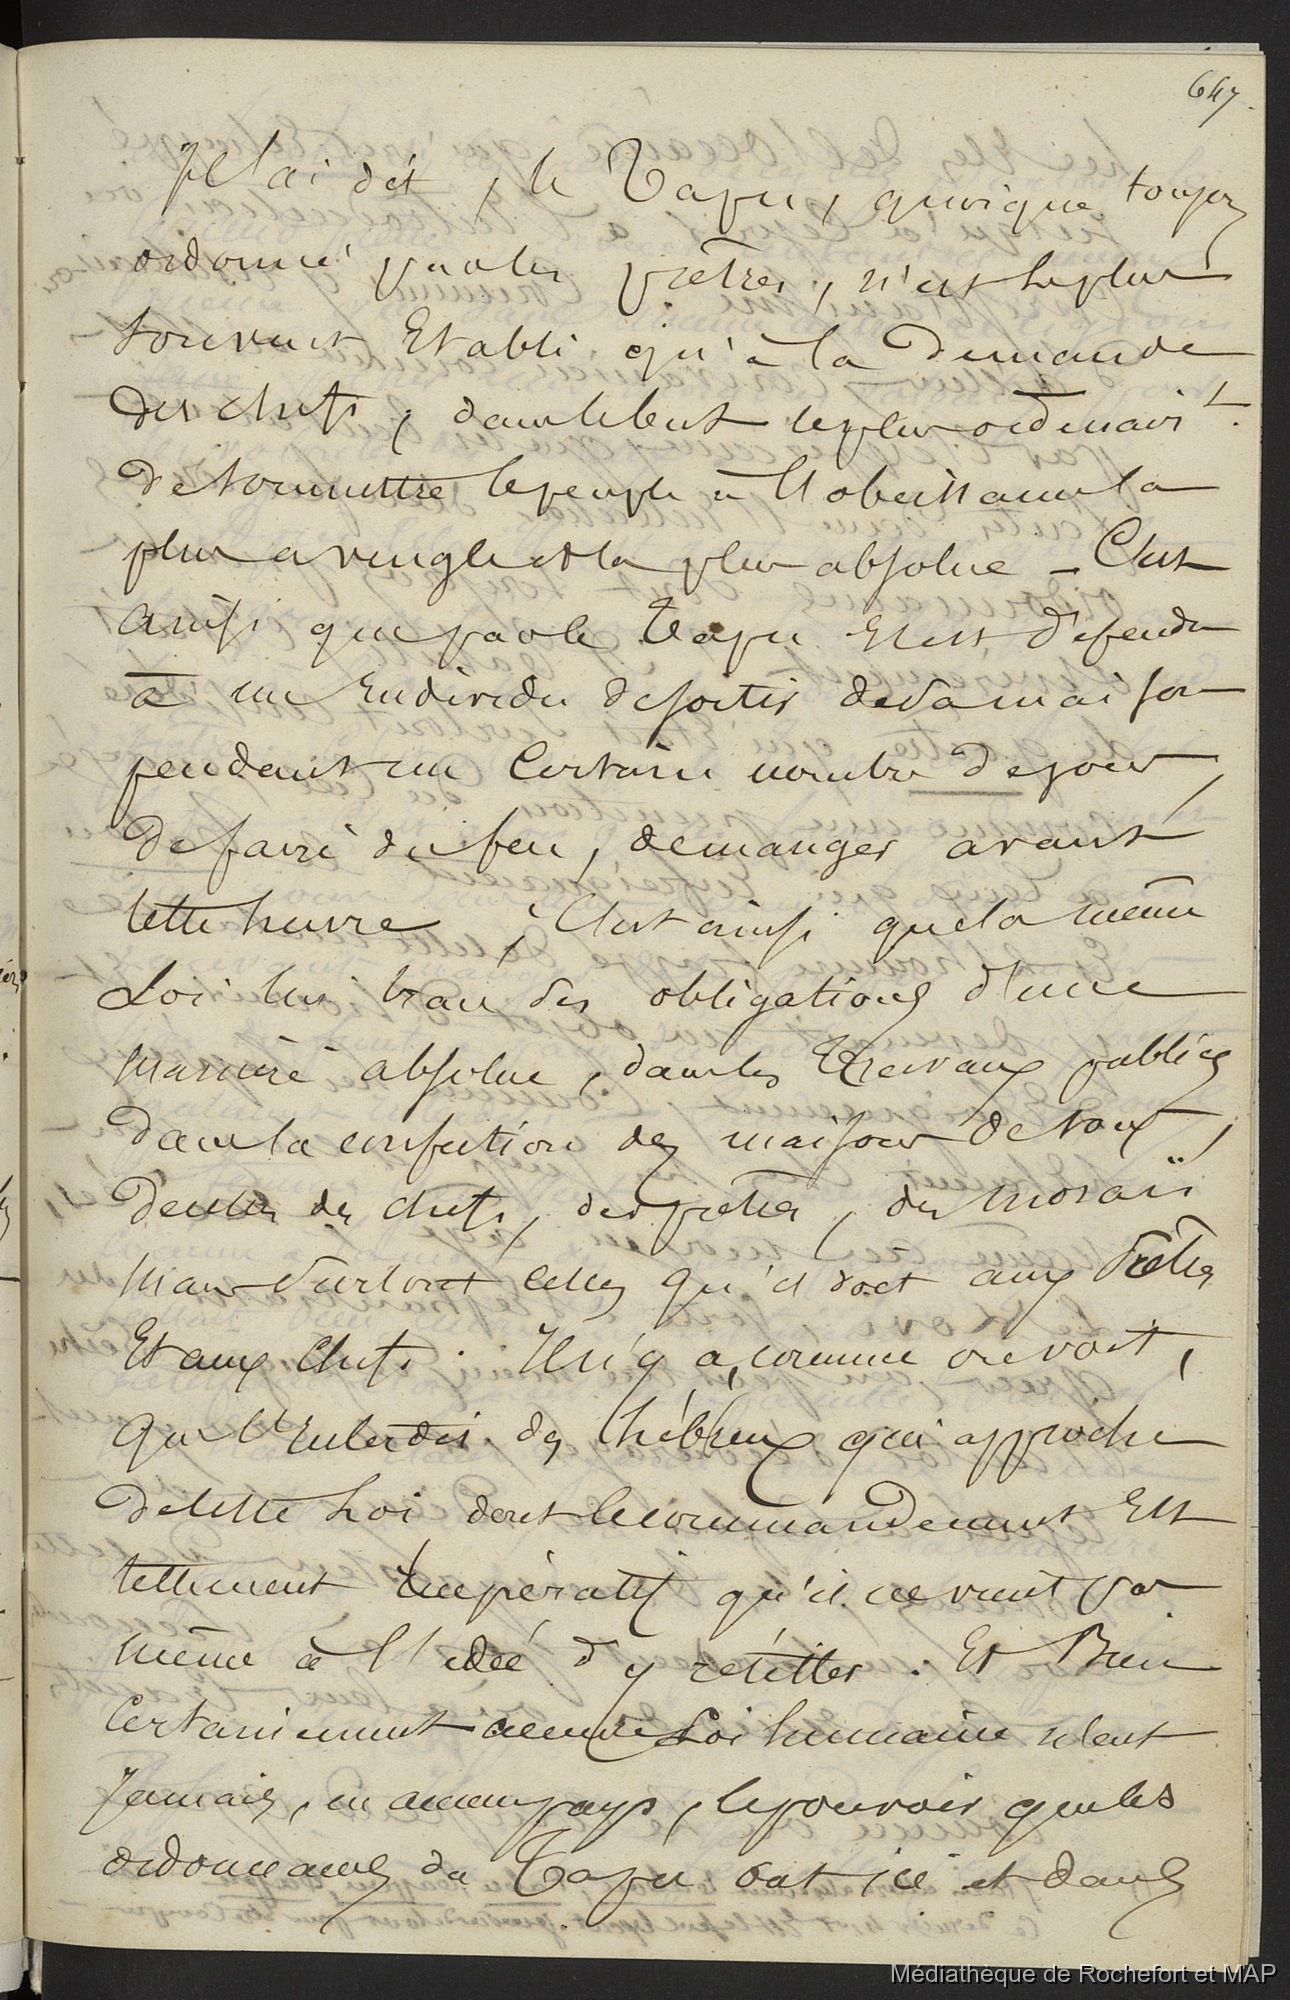 647.
Je l'ai dit, le Tapu, quoique toujours
ordonné par les prêtres, n'est le plus
souvent Etabli qu'à la demande
des chefs, dans le but le plus ordinairt.
de soumettre le peuple à l'obeissance la
plus aveugle et la plus absolue – C'est
ainsi que par le Tapu Il est défendu
à un Individu de sortir de sa maison
pendant un Certain nombre de jours,
de faire du feu, de manger avant
telle heure ; C'est ainsi que la même
Loi lui trace des obligations d'une
manière absolue, dans les Travaux publics
dans la confection des maisons de tous,
de celles des chefs, des prêtres, des moraïs
mais surtout celles qu'il doit aux Prêtres
Et aux Chefs. Il n'y a, comme on voit,
que l'Interdit des hébreux qui approche
de cette Loi, dont le commandement Est
tellement Impératif qu'il ne vient pas
même à l'idée d'y résister. Et Bien
Certainement aucune Loi humaine n'eut
Jamais, en aucun pays, le pouvoir que les
ordonnances du Tapu ont ici et dans
Médiathèque de Rochefort et MAP